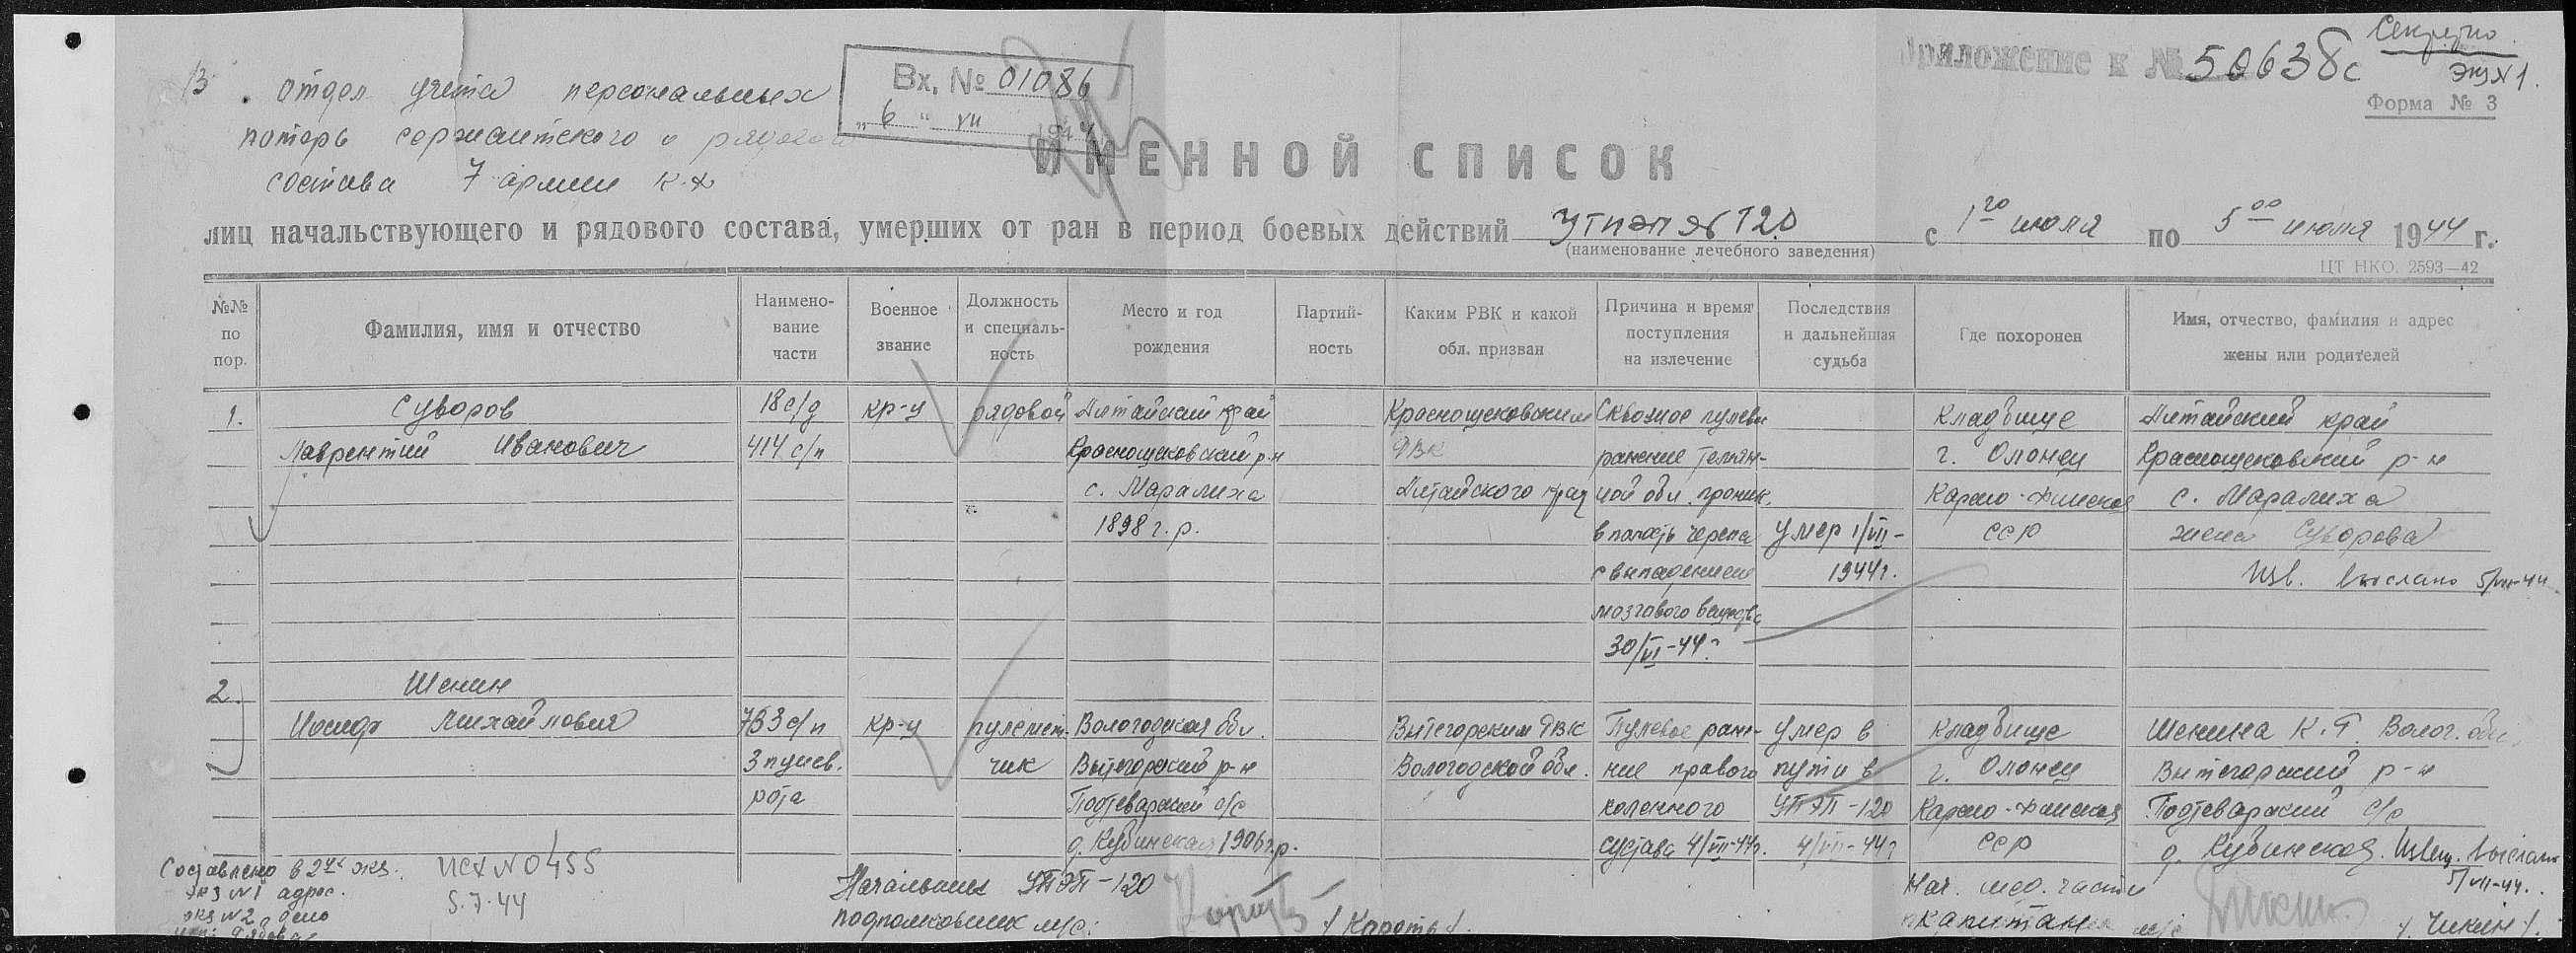 Секретно
экз N 1.
Приложение к № 50638с
Форма № 3
Вх. № 01086
„ 6 “ VII 1944
В отдел учета персональных
потерь сержантского и рядового
состава 7 армии К.Ф.
ИМЕННОЙ СПИСОК
лиц начальствующего и рядового состава, умерших от ран в период боевых действий
(наименование лечебного заведения)
с 1го июля по 5оо июля 1944 г.
ЦТ НКО. 2593—42
№№ по пор.
Фамилия, имя и отчество
Наимено-
вание
части
Военное
звание
Должность
и специаль-
ность
Место и год
рождения
Партий-
ность
Каким РВК и какой
обл. призван
Причина и время
поступления
на излечение
Последствия
и дальнейшая
судьба
Где похоронен
Имя, отчество, фамилия и адрес
жены или родителей
1.
Суворов
Лаврентий Иванович
18 с/д
414 с/п
кр-ц
рядовой
Алтайский край
Краснощековский р-н
с. Маралиха
1898 г. р.
Краснощековским
РВК
Алтайского края
Сквозное пулевое
ранение темян-
ной обл. проник.
в полость черепа
с выпадением
мозгового вещества
30/VI-44г
умер 1/VII-
1944г.
Кладбище
г. Олонец
Карело-Финская
ССР
Алтайский край
Краснощековский р-н
с. Маралиха
жена Суворова
Изв. выслано 5/VII-44
2.
Шенин
Иосиф Михайлович
763 с/п
3 пулев.
рота
кр-ц
пулемет-
чик
Вологодская обл.
Вытегорский р-н
с/с
д. Кубинская 1906 г.р.
Вытегорским РВК
Вологодской обл.
Пулевое ране-
ние правого
коленного
сустава 4/VII-44г.
умер в
пути в
УПЭП-120
4/VII-44г
Кладбище
г. Олонец
Карело-Финская
ССР
Шенина К. Г. Волог. обл.
Вытегорский р-н
с/с
д. Кубинская. Извещ. выслано
5/VII-44.
Составлено в 2х экз.
экз N 1 адрес.
экз N 2 дело
исх N 0455
5.7.44
Начальник УПЭП-120
подполковник м/с:
/Короть/.
Нач. мед. части
капитан м/с
/. Чикин/.